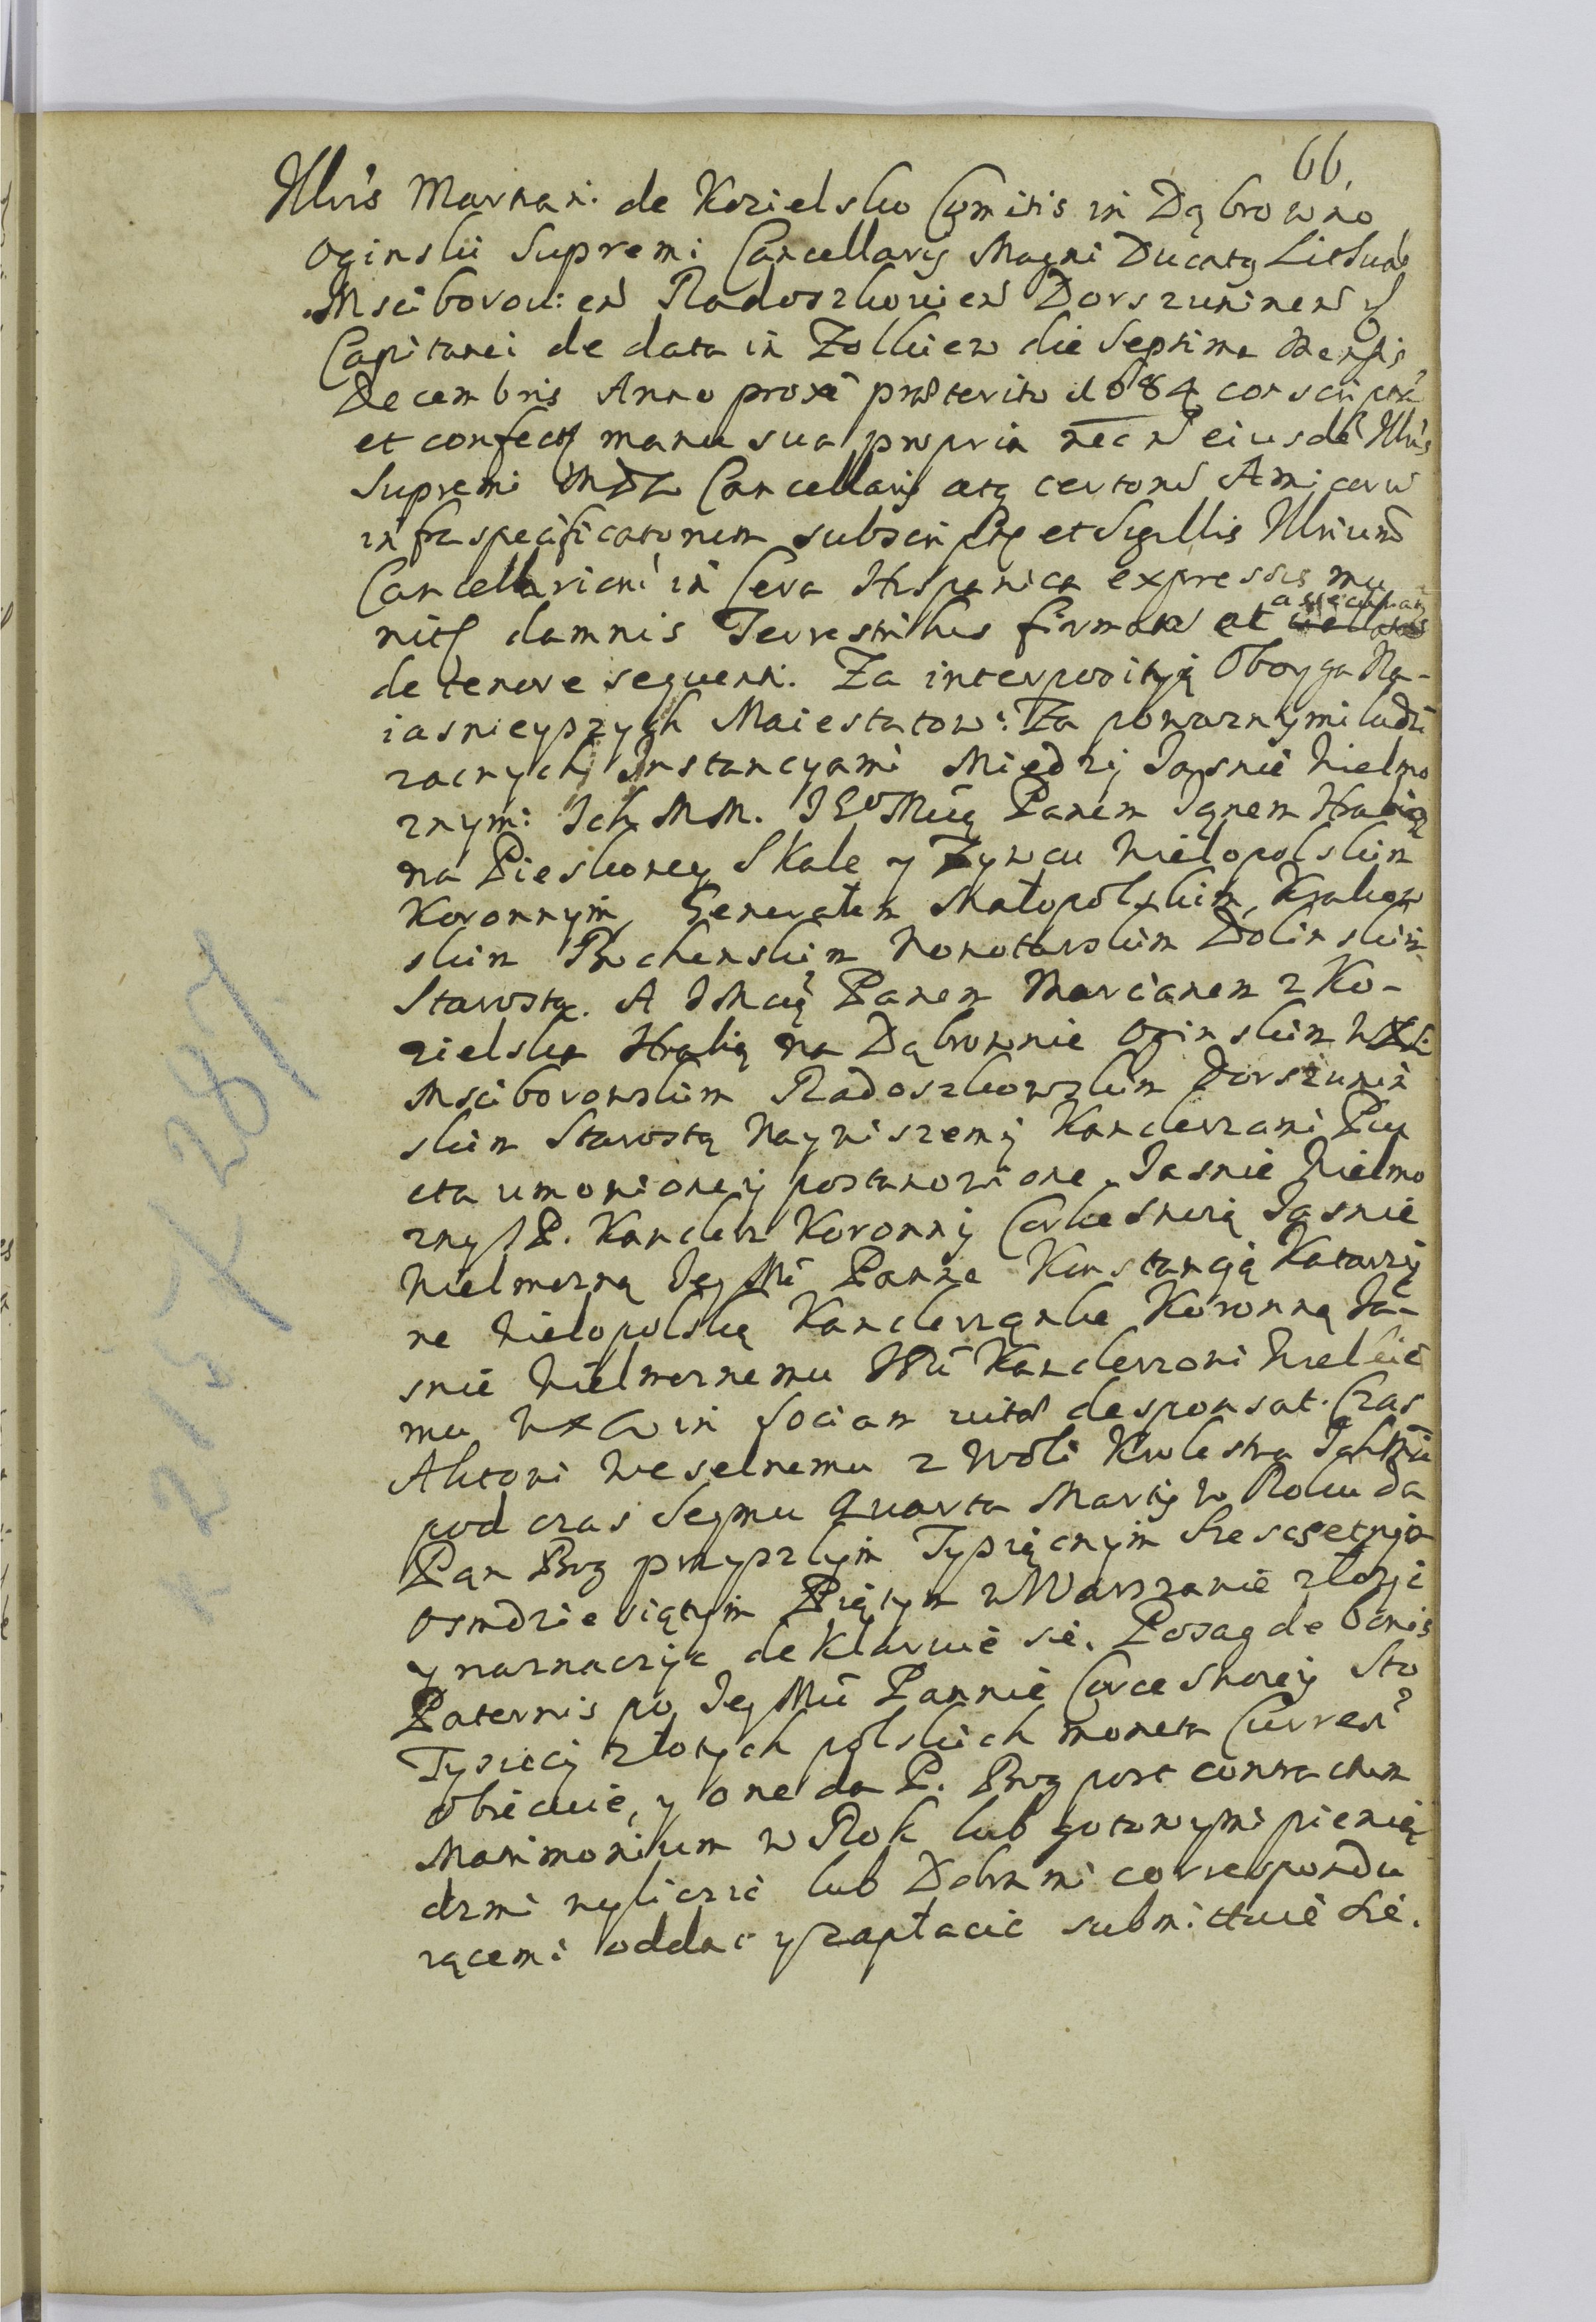 66.
Illris Martiani de Kozielsko Comitis in Dąbrowno
Oginskii Supremi Cancellarij Magni Ducatq Lithuae
Msciborovi: en Radoszkovien Dorszuninen
Capitanei de data in Zolkiew die Septima Mensis
Decembris Anno proxe praeterito 1684 conscriptae
et confect manu sua propria necn eiusde Illris
Supremi MDL Cancellarij atq certoru Amicoru
infraspecificatorum subscript et Sigillis Illrium
Cancellariorū in Cera Hispanica expressis mu
nit damnis Terrestribus firmatae et assecurat
de tenore sequenti. Za interpositią Oboyga Na-
iasnieyszych Maiestatow: Za powaznymi ludzi
zacnych Instancyami Między Jasnie Wielmo
znymi Ich MM. JEo Mcią Panem Janem Hrabią
na Pieskowey Skale y Zywcu Wielopolskim
Koronnym, Generałem Małopolskim, Krakow
skim Bochenskim Nowotarskim Dolinskim
Starostą. A JMcią Panem Marcianem z Ko-
zielska Hrabią na Dąbrownie Oginskim WXL
Msciborowskim Radoszkowskim Dorszunin
skim Starostą Naywiszemi Kanclerzami Pu
cta umowione y postanowione. Jasnie Wielmo
zny JP. Kanclerz Koronny Corke Swoią Jasnie
Wielmozną Jey Mć Panne Konstancją Katarzy
ne Wielopolską Kanclerzanke Koronną Ja-
snie Wielmoznemu JMć Kanclerzowi Wielkie
mu WXL in Sociam vitae desponsat. Czas
Aktowi Weselnemu z Woli Krolestwa IchMć
pod czas Seymu Quarta Martij w Roku da
Pan Bog przyszlym Tysiącnym Szescsetnym
Osmdziesiątym Piątym w Warszawie złozyc
y naznaczyc deklaruie sie. Posag de bonis
Paternis po Jey Mć Pannie Corce Swoiey Sto
Tysiecy złotych polskich moneta Curren
obiecuie, y one da P. Bog post contractum
Matrimonium w Rok lub gotowymi pienią
dzmi wyliczic lub Dobrami correspondu
iącemi oddac y zapłacic submittuie sie.